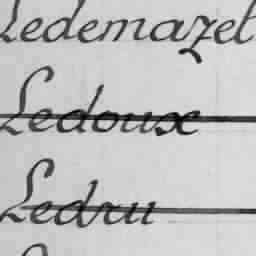 Ledemazet
Ledoux
Ledru